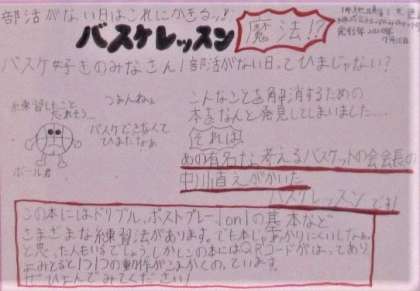 部活がない日はこれにかぎるッ!
バスケレッスン
魔法!?
バスケ好きのみなさん!部活がない日ってひまじゃない?
つまんねぇ
バスケできなくて
ひまだなぁ
ボール君
こんなことを解消するための
本をなんと発見してしまいました……
それは
あの有名な考えるバスケットの会会長の
中川直えがかいた
バスケレッスンです!
この本にはドリブル、ポストプレー1on1の基本など
さまざまな練習法があります。でも本じゃ分かりにくいしなぁ
と思った人もいるでしょうしかしこの本にはQRコードがはってあり
よみてると1つ1つの動作がこまかくのっています。
ぜひよんでみてください!